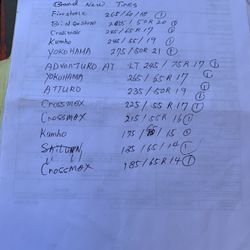 Brand New Tires
Firestone 265/60/18 ①
Bridgestone 285/50R 20 ①
Crossmax 245/65R 17 ①
Kumho 245/55/19 ①
YOKOHAMA 275/50R 21 ①
ADVENTURO AT LT 245/75R 17 ①
YOKOHAMA 265/65R 17 ①
ATTURO 235/50R 19 ①
Crossmax 225/55R 17 ①
Crossmax 215/55R 16 ①
Kumho 175/65/15 ①
185/65/14 ①
Crossmax 185/65R 14 ①